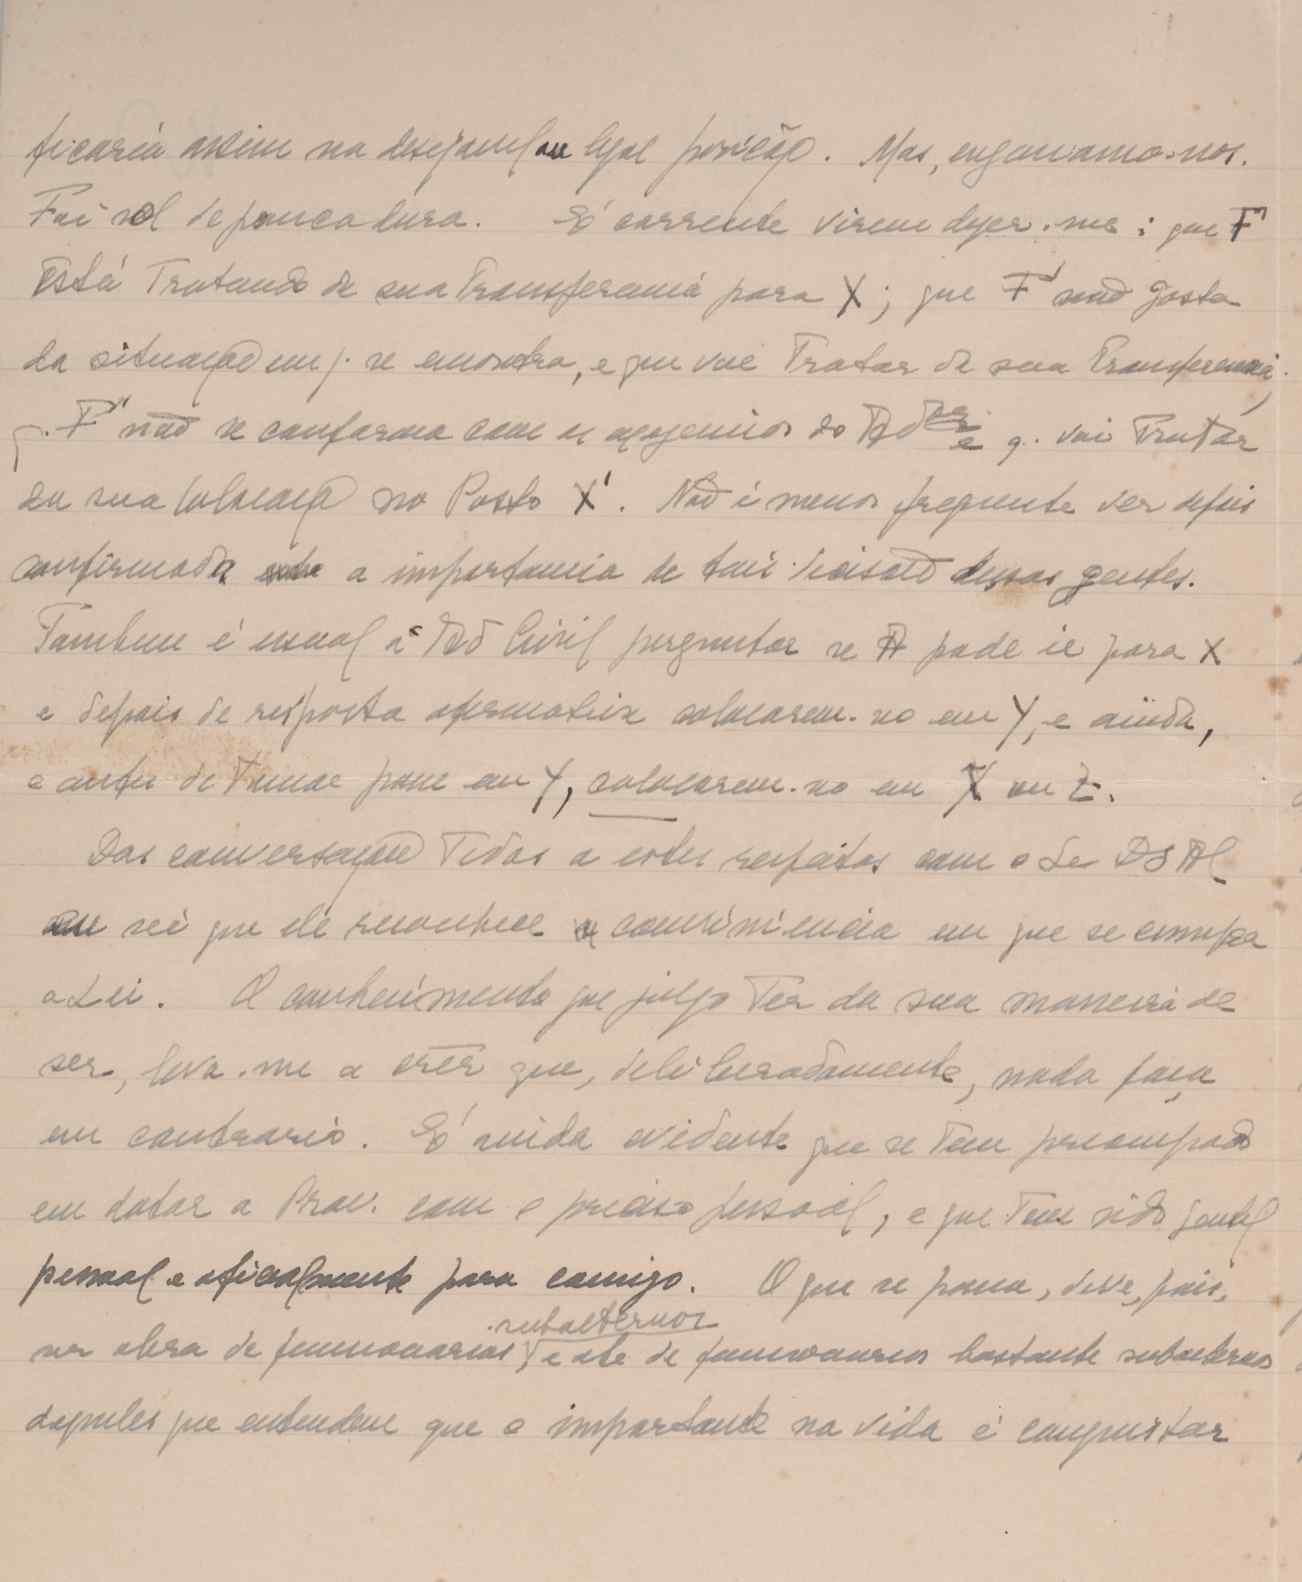 ficaria assim na desejavel ou legal posição. Mas, enganamo-nos.
Foi sol de pouca dura. É corrente virem dizer-me: que F
está Tratando de sua Transferencia para X; que F' não gosta
da situação em q. se encontra, e que vai Tratar da sua Transferencia;
q. F'' não se conforma com os do e q. vai Tratar
da sua colocação no Posto X'. Não é menos frequente ver depois
confirmada a importancia de tais dessas gentes.
Tambem é usual a Civil perguntar se A pode ir para X
e depois de resposta afirmativa colocarem-no em Y, e ainda,
e antes de Tomar posse em Y, colocarem-no em X ou Z.
Das conversações Tidas a estes respeitos com o
eu sei que ele reconhece a conveniencia em que se cumpra
a Lei. O conhecimento que julgo Ter da sua maneira de
ser, leva-me a crêr que, deliberadamente, nada faça
em contrario. É ainda evidente que se Tem preocupado
em dotar a Prov. com o preciso pessoal, e que Tem sido gentil
pessoal e oficialmente para comigo. O que se passa, deve, pois,
ser obra de funcionarios subalternos e até de funcionarios bastante subalternos
daqueles que entendem que o importante na vida é conquistar